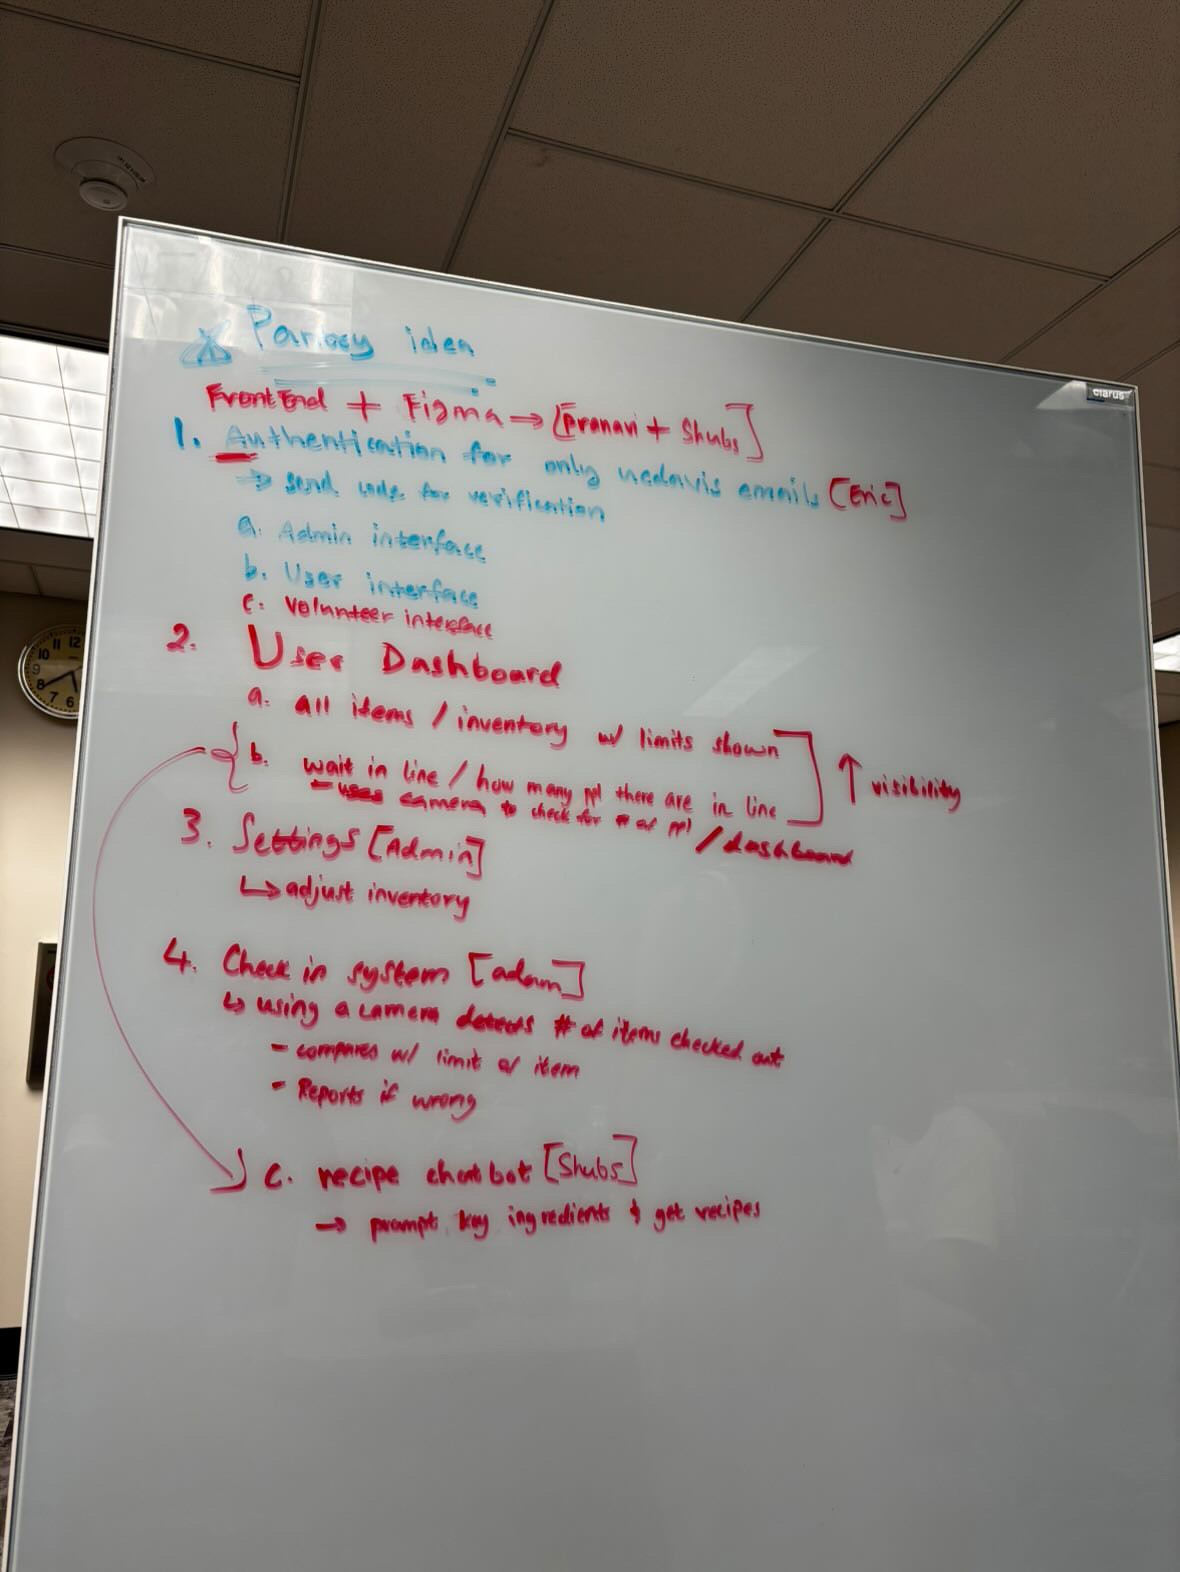 Pantry idea
FrontEnd + Figma → [Pranavi + Shubs]
1. Authentication for only ucdavis emails [Eric]
→ send code for verification
a. Admin interface
b. User interface
c. Volunteer interface
2. User Dashboard
a. all items / inventory w/ limits shown
b. wait in line / how many ppl there are in line
↑ visibility
- uses camera to check for # of ppl / dashboard
3. Settings [Admin]
↳ adjust inventory
4. Check in system [adam]
↳ using a camera detects # of items checked out
- compares w/ limit of item
- Reports if wrong
c. recipe chatbot [Shubs]
→ prompt key ingredients & get recipes
clarus
10 11 12
9
8
7 6 5